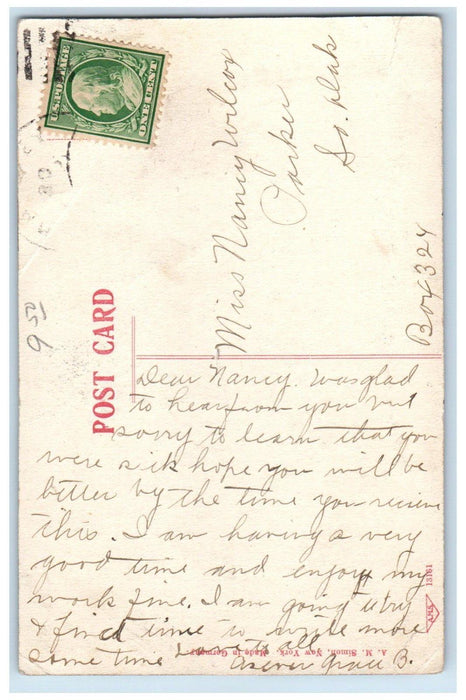 U.S. POSTAGE
ONE CENT
Miss Nancy Wilcox
Parker
So. Dak
Box 324
9 50
POST CARD
Dear Nancy. Was glad
to hear from you but
sorry to learn that you
were sick hope you will be
better by the time you receive
this. I am having a very
good time and enjoy my
work fine. I am going to try
& find time to write more
some time
As ever Grace B.
A. M. Simon, New York. Made in Germany
AMS
13161